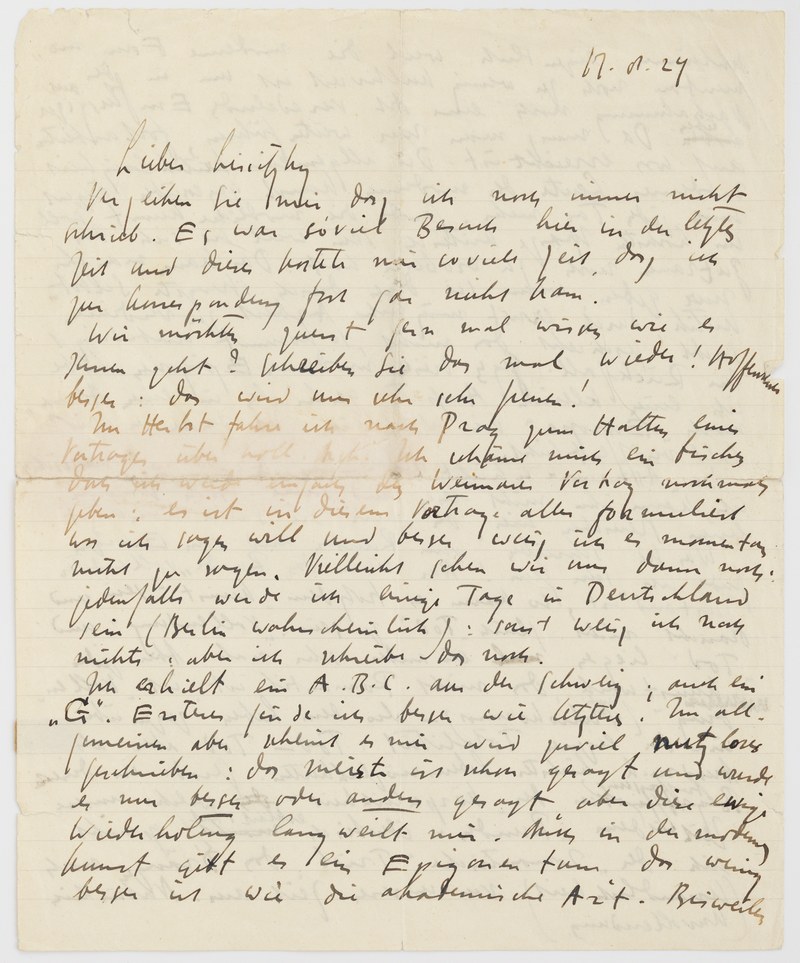 17. 8. 24
Lieber Lissitzky
Verzeihen Sie mir dasz ich noch immer nicht
schrieb. Es war soviel Besuch hier in der letzten
Zeit und dieses kostete mir soviele Zeit, dasz ich
zur korrespondenz fast gar nicht kam.
Wir möchten zuerst gern mal wissen wie es
Ihnen geht? Schreiben Sie das mal wieder! Hoffentlich
besser: das wird uns sehr sehr freuen!
Im Herbst fahre ich nach Prag zum Halten eines
Vortrages über Ich schäme mich ein bischen
dasz ich wieder einfach den Weimarer Vortrag nochmals
geben: es ist in diesem Vortrage alles formuliert
was ich sagen will und besser weisz ich es momentan
nicht zu sagen. Vielleicht sehen wir uns dann noch:
jedenfalls werde ich einige Tage in Deutschland
sein (Berlin wahrscheinlich): sonst weisz ich noch
nichts, aber ich schreibe das noch.
Ich erhielt ein A.B.C. aus der Schweiz; auch ein
„G". Ersteres finde ich besser wie letzteres! Im all-
gemeinen aber scheint es mir wird zuviel nutzloses
geschrieben: das meiste ist schon gesagt und wurde
es nur besser oder anders gesagt aber diese ewige
Wiederholung langweilt mir. Auch in der modernen
kunst gibt es ein Epigonentum das wenig
besser ist wie die akademische Art. Bisweilen